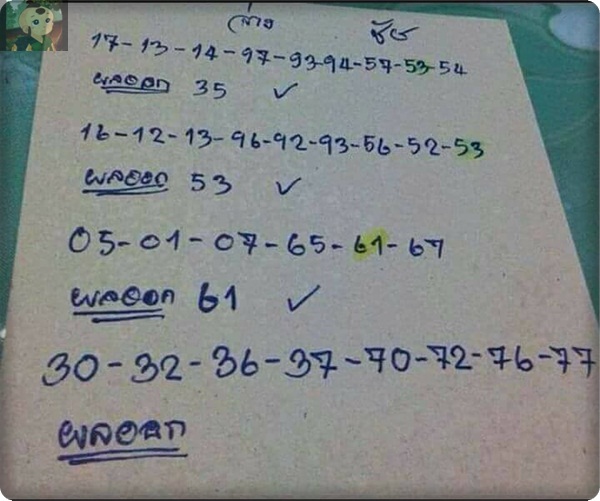 ล่าง ชัย
17-13-14-97-93-94-57-53-54
ผลออก 35 ✓
16-12-13-96-92-93-56-52-53
ผลออก 53 ✓
05-01-07-65-61-67
ผลออก 61 ✓
30-32-36-37-70-72-76-77
ผลออก